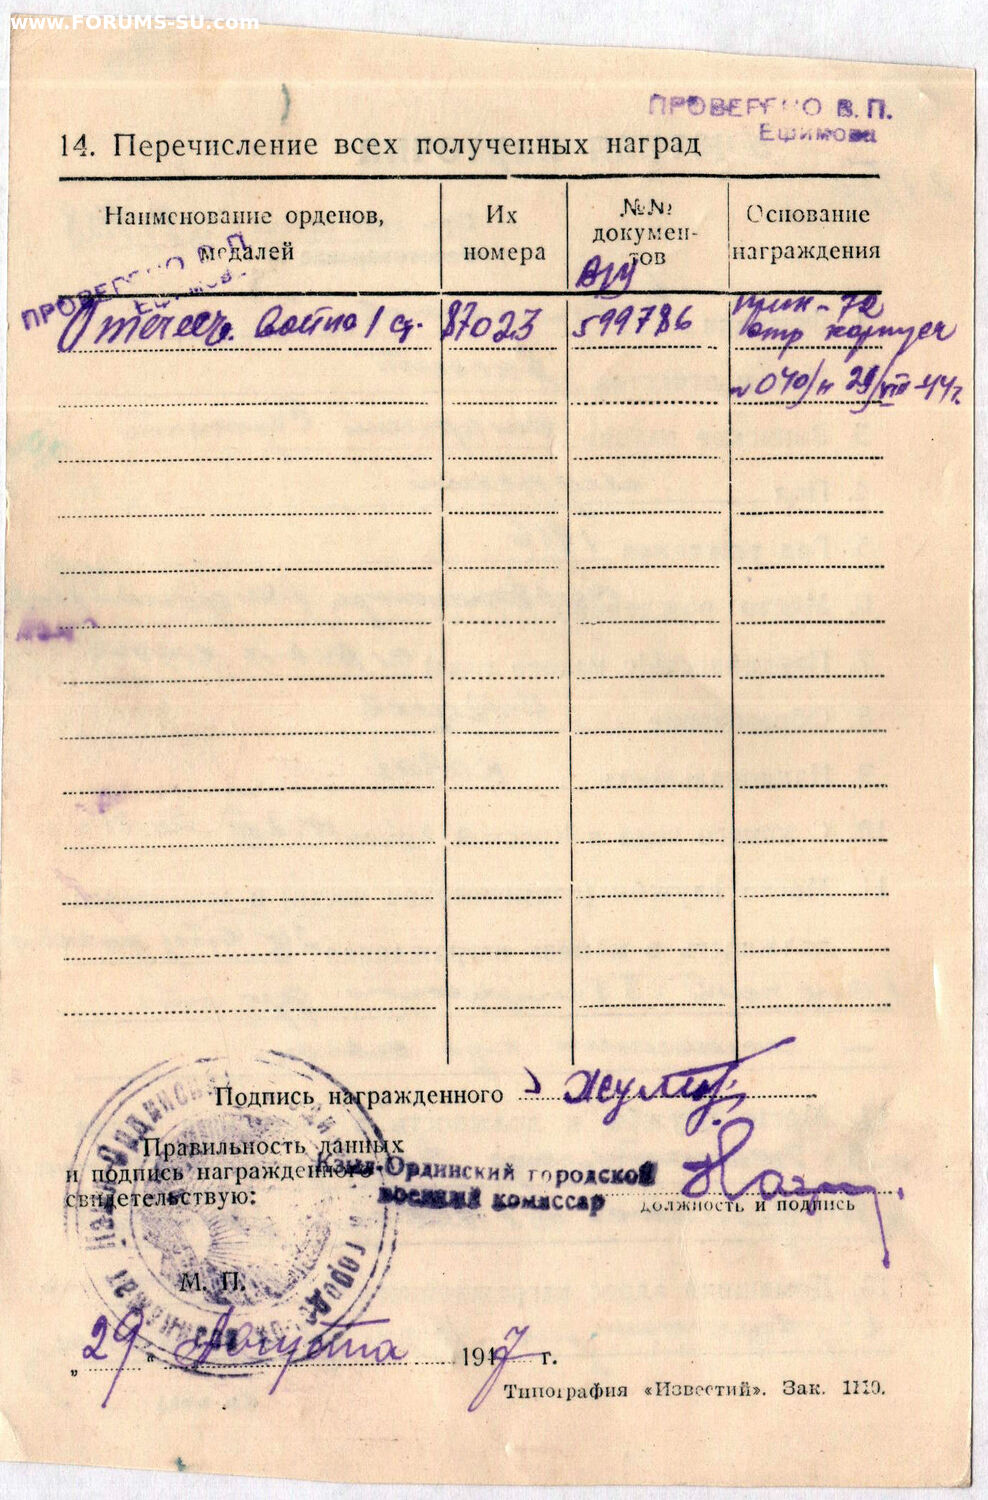 www.FORUMS-SU.com
ПРОВЕРЕНО В. П.
Ешимова
14. Перечисление всех полученных наград
Наименование орденов,
медалей
Их
номера
№№
докумен-
тов
Основание
награждения
ПРОВЕРЕНО В. П.
Ешимова
Отечеств. войны I ст.
87023
599786
прик - 72
стр корпуса
№ 040/н 29/VIII-44г.
Подпись награжденного
Правильность данных
и подпись награжденного
свидетельствую:
Кзыл-Ординский городской
военный комиссар
должность и подпись
М. П.
„29“ Августа 1947 г.
Типография «Известий». Зак. 1119.